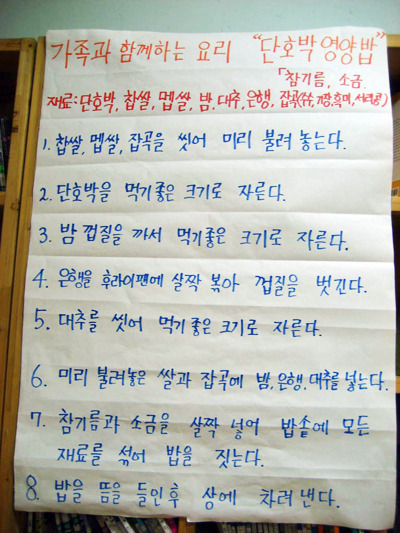 가족과 함께하는 요리 "단호박 영양밥"
「참기름, 소금,
재료: 단호박, 찹쌀, 멥쌀, 밤, 대추, 은행, 잡곡(수수, 기장, 흑미, 서리콩)
1. 찹쌀, 멥쌀, 잡곡을 씻어 미리 불려 놓는다.
2. 단호박을 먹기좋은 크기로 자른다.
3. 밤 껍질을 까서 먹기좋은 크기로 자른다.
4. 은행을 후라이팬에 살짝 볶아 껍질을 벗긴다.
5. 대추를 씻어 먹기 좋은 크기로 자른다.
6. 미리 불려놓은 쌀과 잡곡에 밤, 은행, 대추를 넣는다.
7. 참기름과 소금을 살짝 넣어 밥솥에 모든
재료를 섞어 밥을 짓는다.
8. 밥을 뜸을 들인 후 상에 차려 낸다.